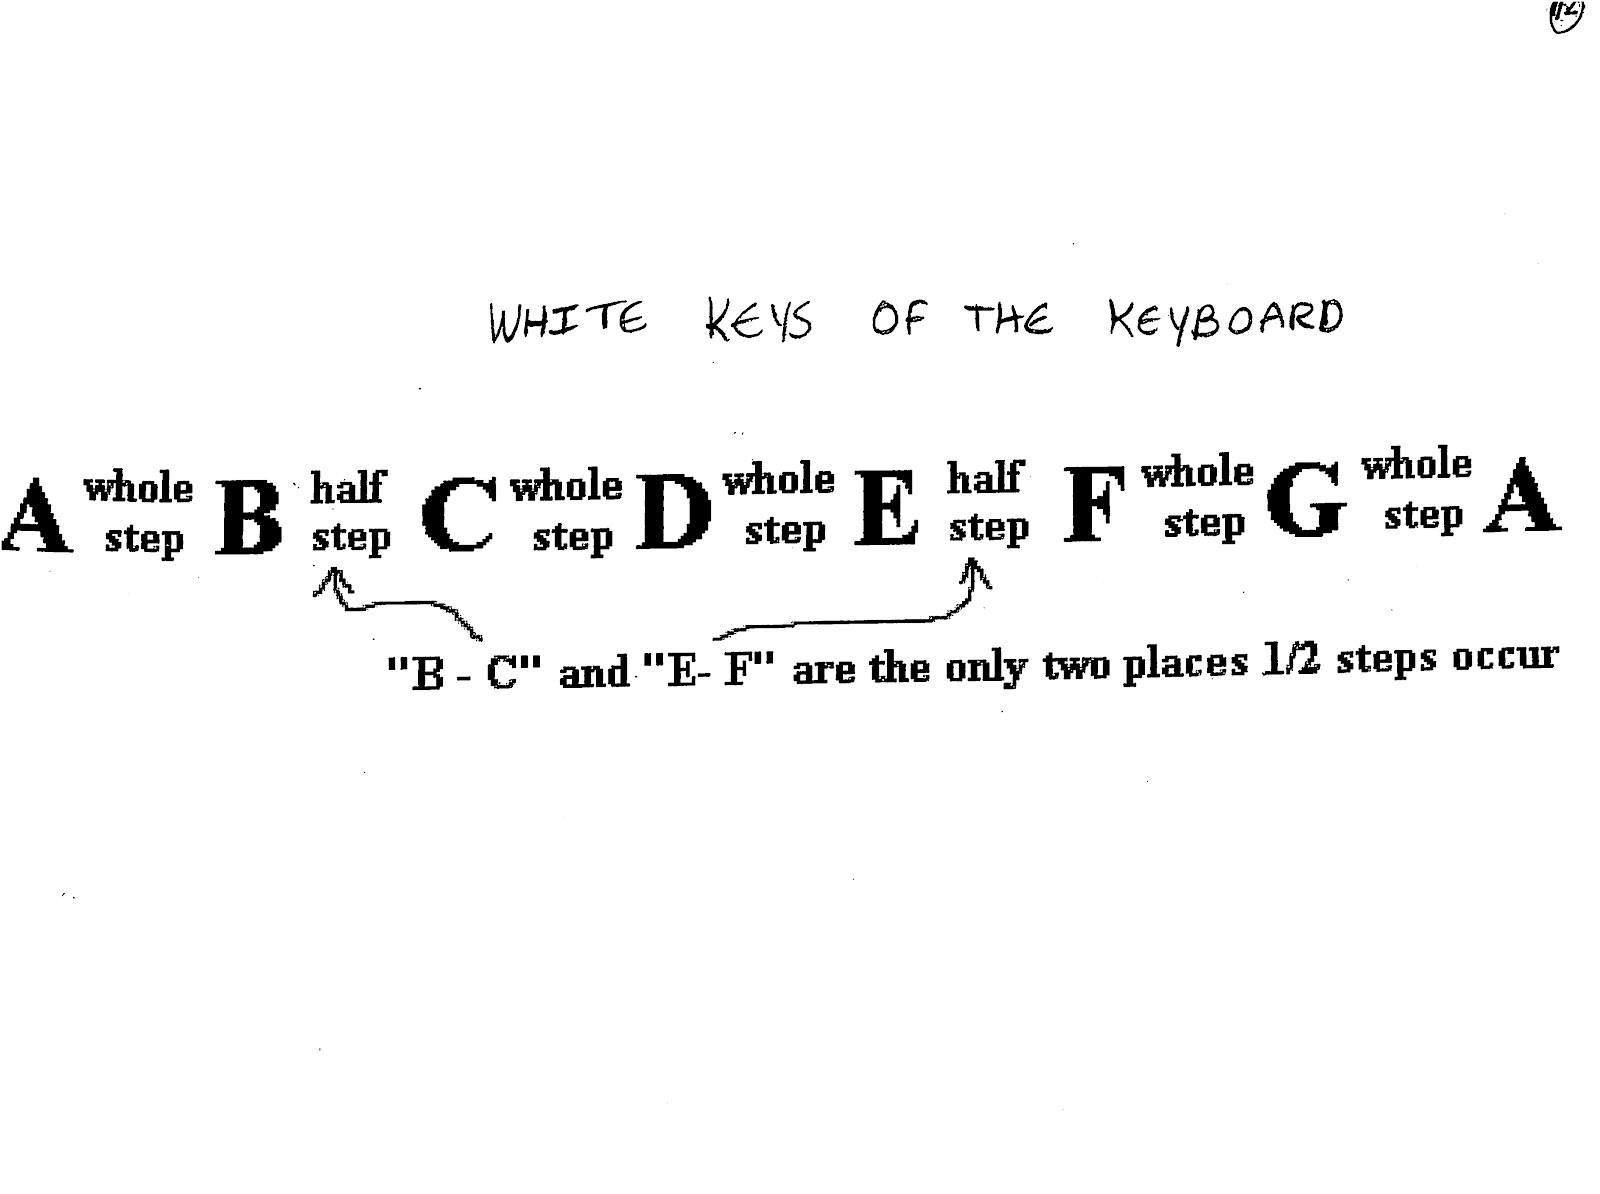 WHITE KEYS OF THE KEYBOARD
A whole step B half step C whole step D whole step E half step F whole step G whole step A
"B - C" and "E- F" are the only two places 1/2 steps occur